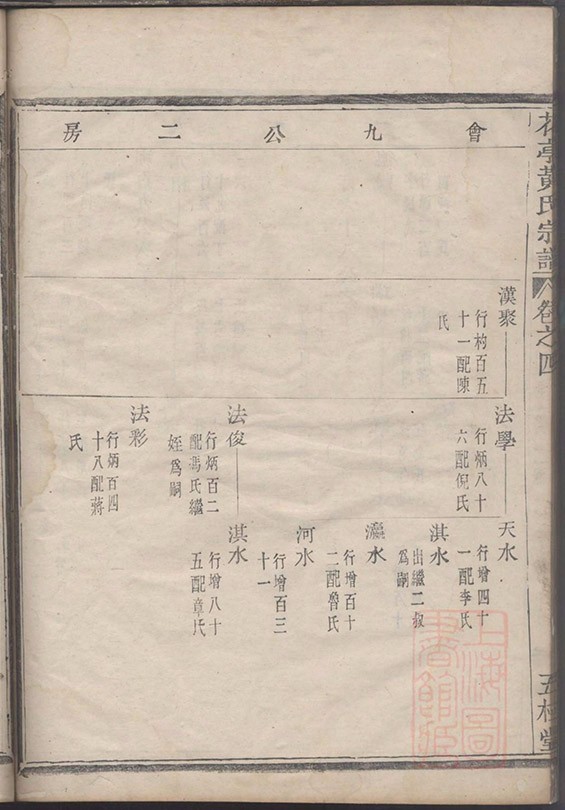 會九公二房
漢聚
行杓百五
十一配陳
氏
法學
行炳八十
六配倪氏
天水
行增四十
一配李氏
淇水
出繼二叔
爲嗣
瀛水
行增百十
二配魯氏
河水
行增百三
十一
法俊
行炳百二
配馮氏繼
姪爲嗣
淇水
行增八十
五配章氏
法彩
行炳百四
十八配蔣
氏
亭黃氏宗譜
卷之四
五桂堂
上海圖書館